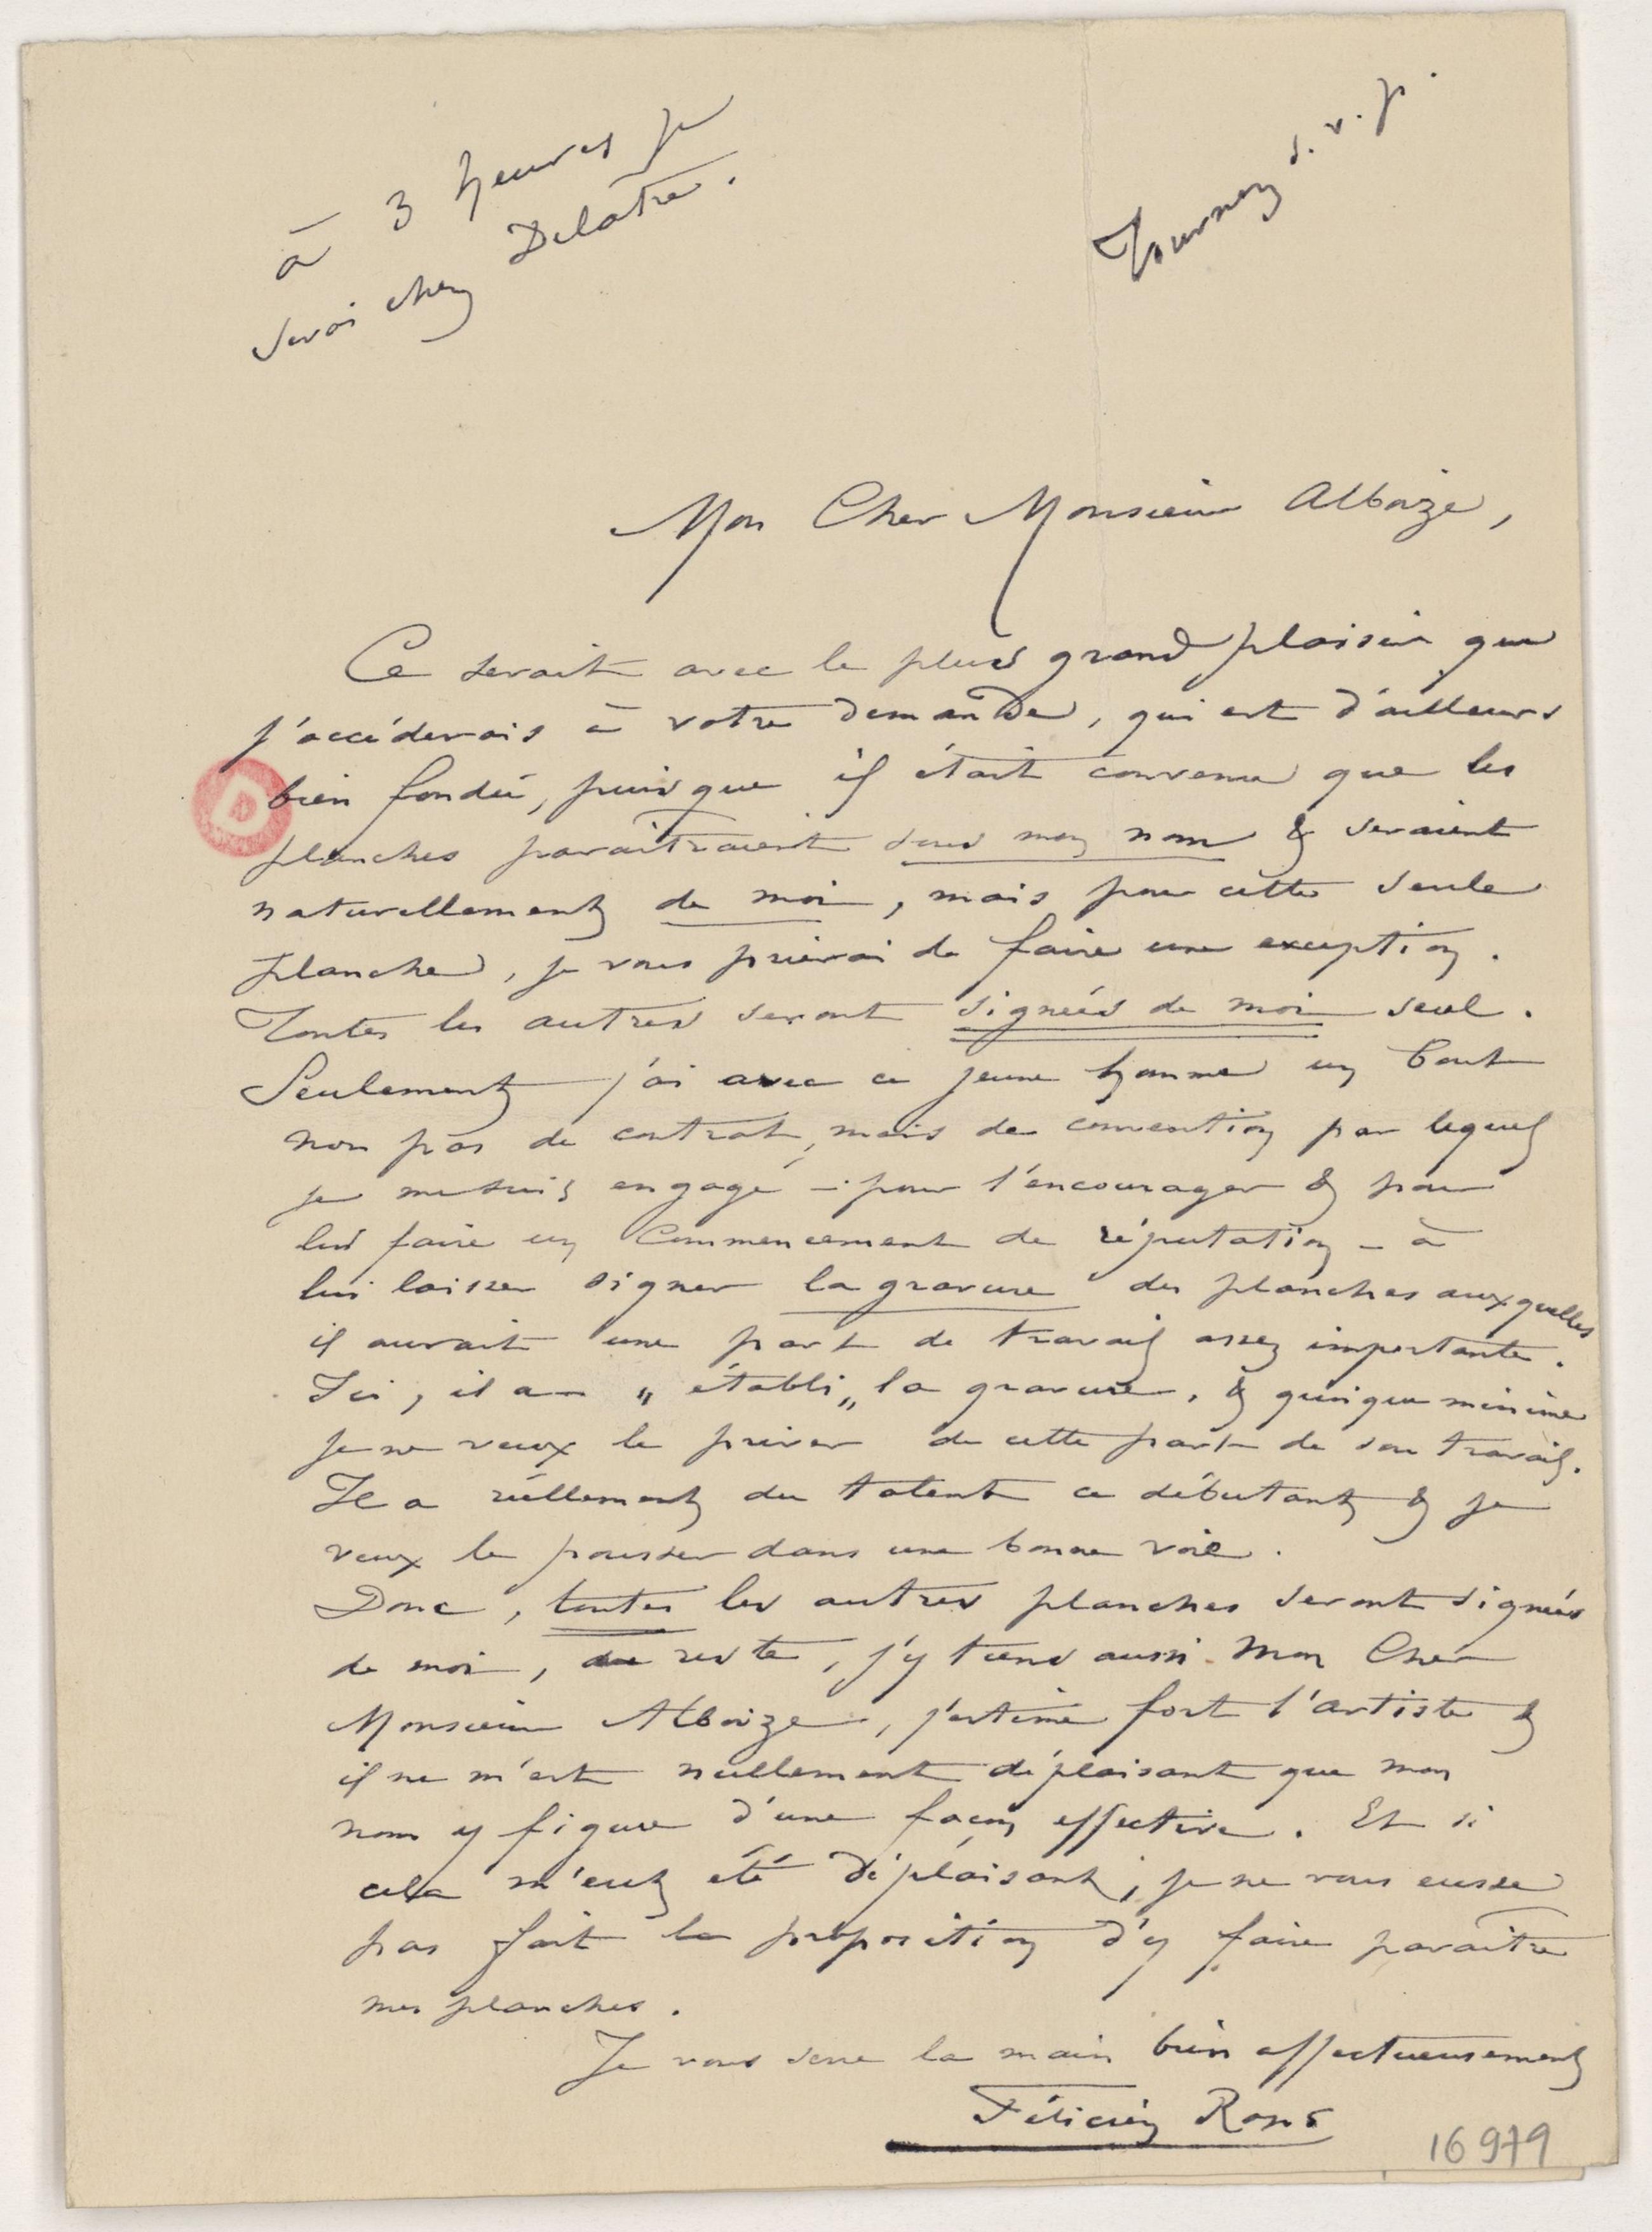 à 3 heures je
serai chez Delatre.
Tournez s. v. p.
Mon Cher Monsieur Alboize,
Ce serait avec le plus grand plaisir que
j'accéderais à votre demande, qui est d'ailleurs
bien fondée, puis que il était convenu que les
planches paraîtraient sous mon nom & seraient
naturellement de moi, mais pour cette seule
planche, je vous prierai de faire une exception.
Toutes les autres seront signées de moi seul.
Seulement j'ai avec ce jeune homme un bout
non pas de contrat, mais de convention par lequel
je me suis engagé – pour l'encourager & pour
lui faire un Commencement de réputation – à
lui laisser signer la gravure des planches auxquelles
il aurait une part de travail assez importante.
Ici, il a „ établi „ la gravure, & quoique minime
je ne veux le priver de cette part de son travail.
Il a réellement du talent ce débutant & je
veux le pousser dans une bonne voie.
Donc, toutes les autres planches seront signées
de moi, du reste, j'y tiens aussi. Mon Cher
Monsieur Alboize, j'estime fort l'artiste &
il ne m'est nullement déplaisant que mon
nom y figure d'une façon effective. Et si
cela m'eut été déplaisant, je ne vous eusse
pas fait la proposition d'y faire paraître
mes planches.
Je vous serre la main bien affectueusement
Félicien Rops
16979
D